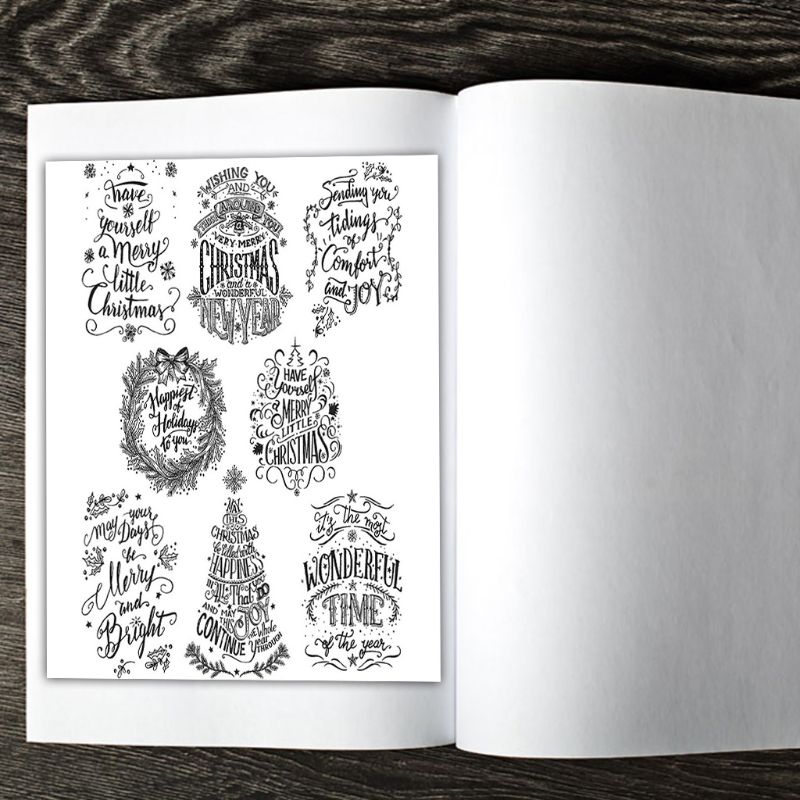 have
yourself
a Merry
little
Christmas
WISHING YOU
AND
THOSE AROUND YOU
A
VERY MERRY
CHRISTMAS
and a
WONDERFUL
NEW YEAR
Sending you
tidings
of
Comfort
and JOY
Happiest
of
Holidays
to you
HAVE
yourself
A MERRY
LITTLE
CHRISTMAS
may your
Days
be
Merry
and
Bright
MAY
THIS
CHRISTMAS
be filled with
HAPPINESS
IN All That You DO
AND MAY
THIS JOY
CONTINUE the Whole
year
THROUGH
it's the most
WONDERFUL
TIME
of the year